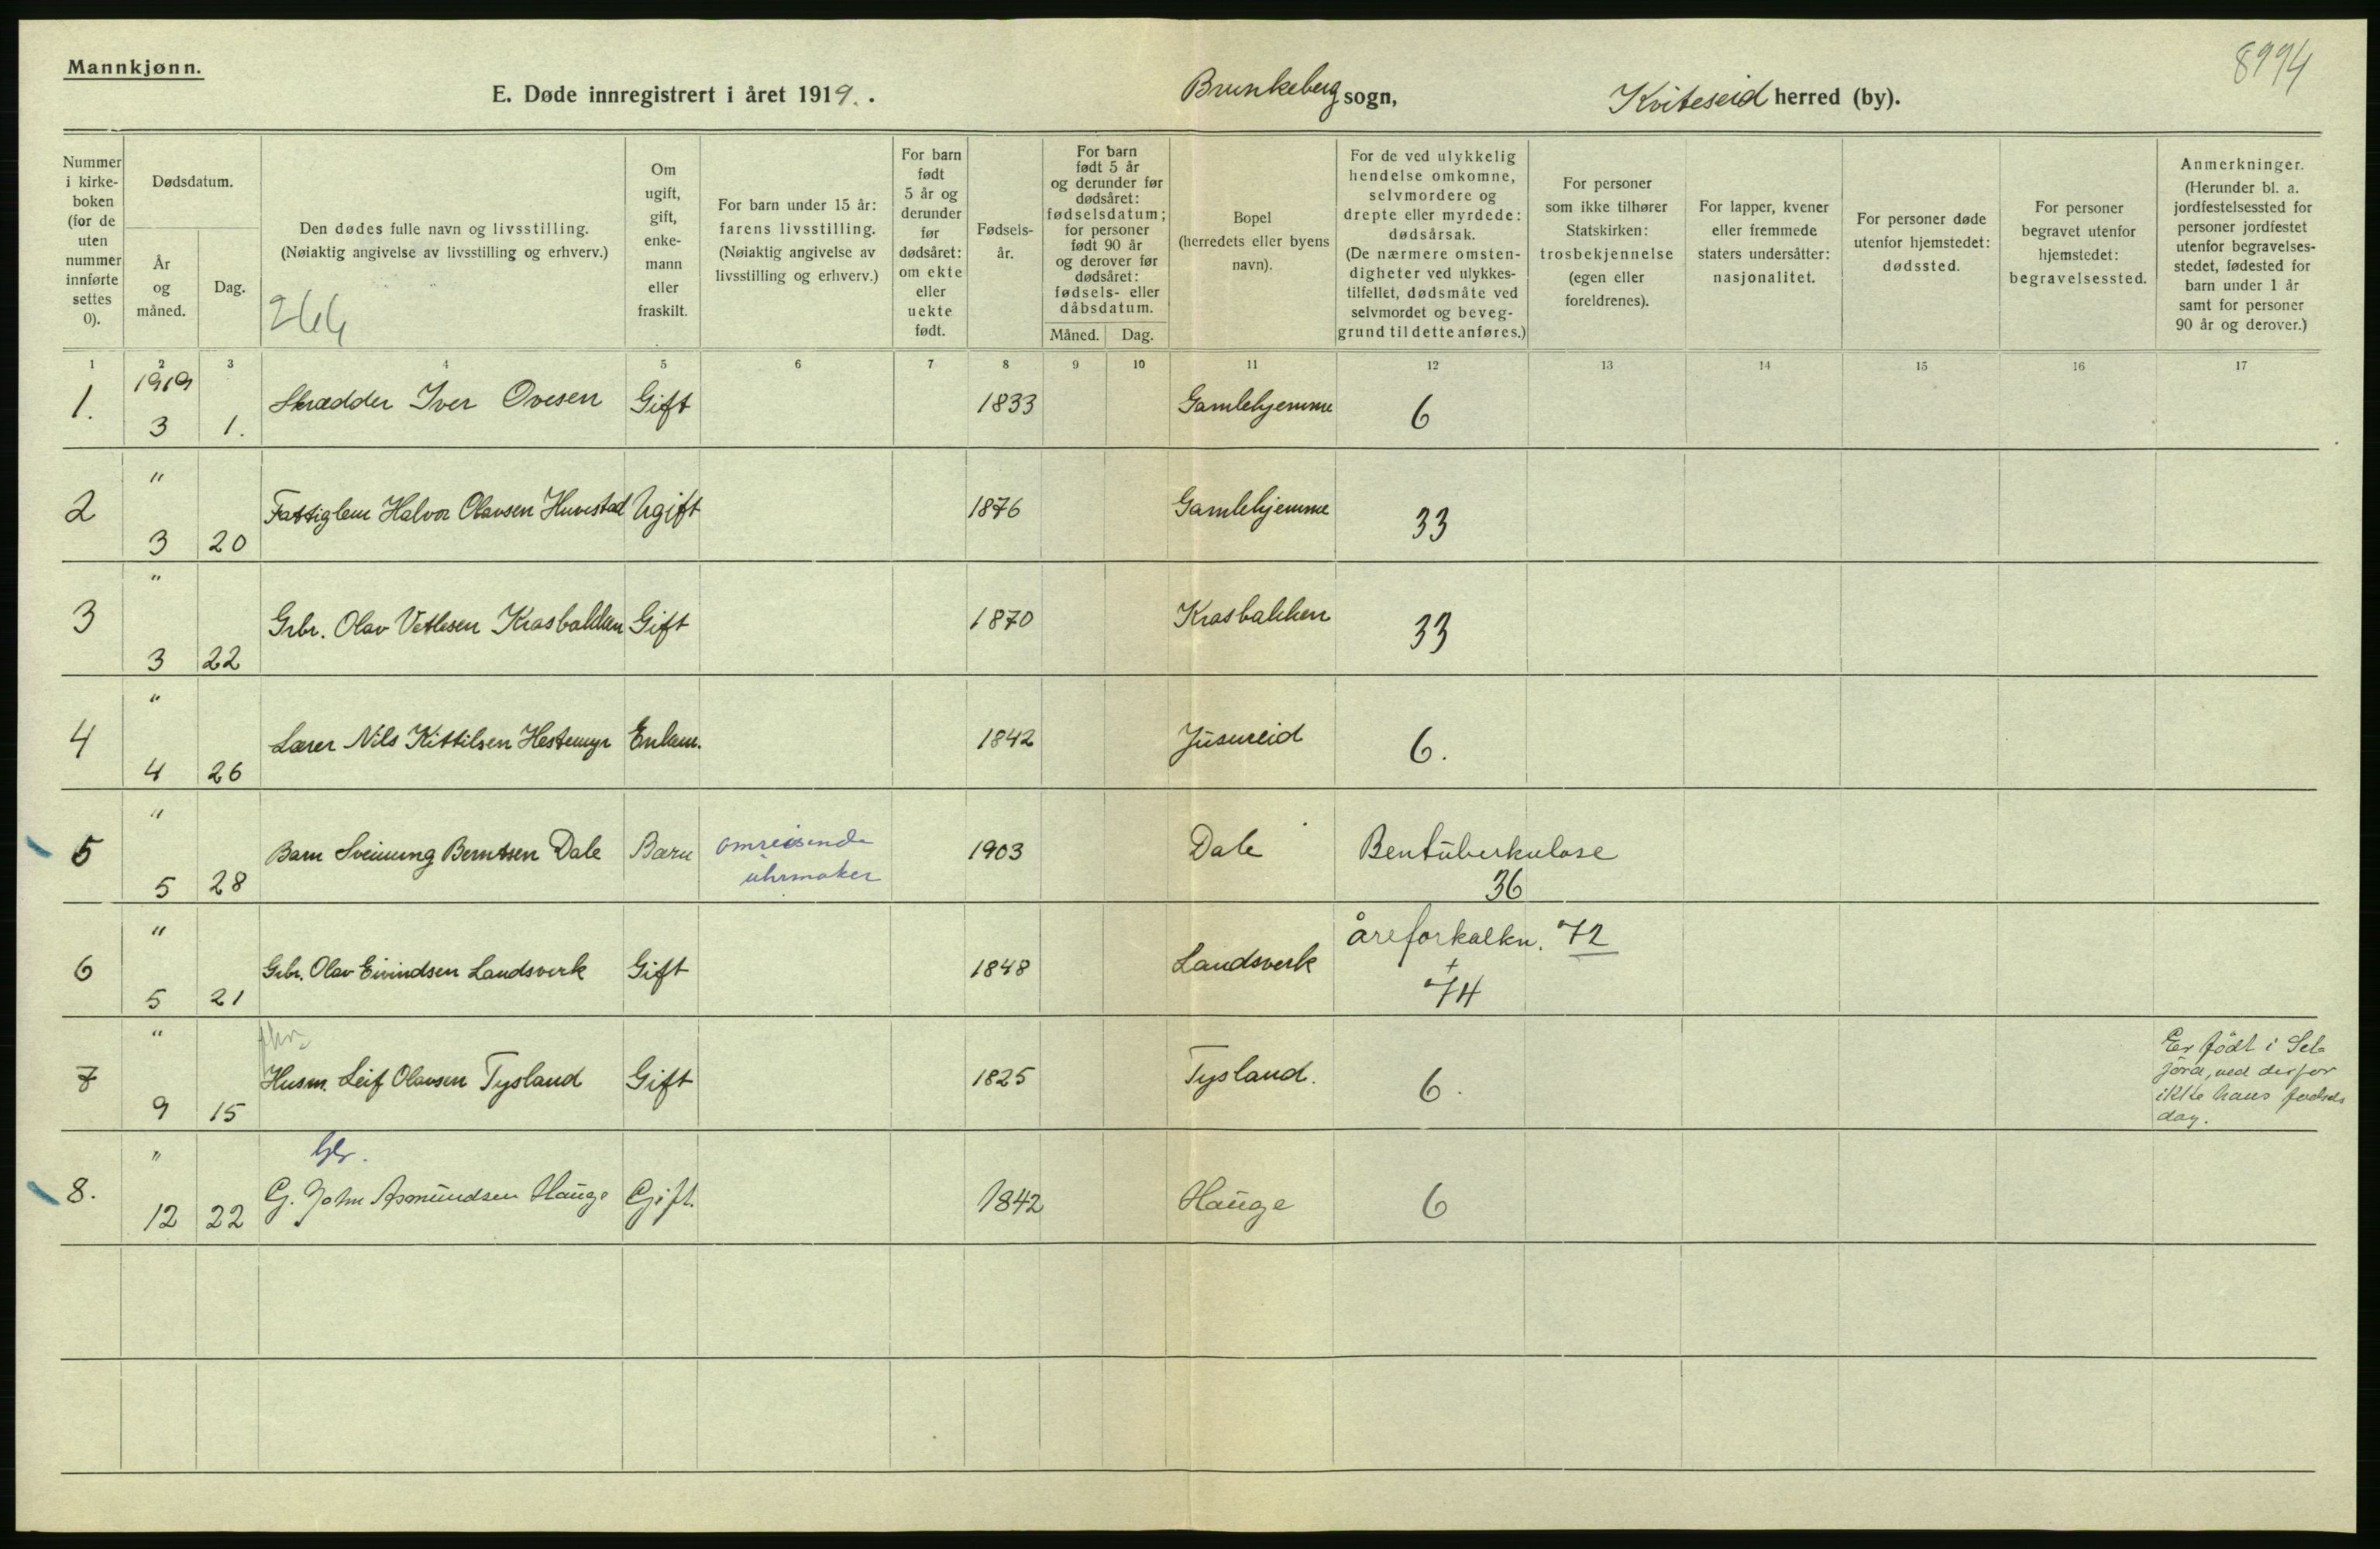 Mannkjønn.
8994
E. Døde innregistrert i året 1919. .
Brunkeberg sogn,
Kviteseid herred (by).
Nummer
i kirke-
boken
(for de
uten
nummer
innførte
settes
0).
Dødsdatum.
År
og
måned.
Dag.
Den dødes fulle navn og livsstilling.
(Nøiaktig angivelse av livsstilling og erhverv.)
Om
ugift,
gift,
enke-
mann
eller
fraskilt.
For barn under 15 år:
farens livsstilling.
(Nøiaktig angivelse av
livsstilling og erhverv.)
For barn
født
5 år og
derunder
før
dødsåret:
om ekte
eller
uekte
født.
Fødsels-
år.
For barn
født 5 år
og derunder før
dødsåret:
fødselsdatum;
for personer
født 90 år
og derover før
dødsåret:
fødsels- eller
dåbsdatum.
Måned. Dag.
Bopel
(herredets eller byens
navn).
For de ved ulykkelig
hendelse omkomne,
selvmordere og
drepte eller myrdede:
dødsårsak.
(De nærmere omsten-
digheter ved ulykkes-
tilfellet, dødsmåte ved
selvmordet og beveg-
grund til dette anføres.)
For personer
som ikke tilhører
Statskirken:
trosbekjennelse
(egen eller
foreldrenes).
For lapper, kvener
eller fremmede
staters undersåtter:
nasjonalitet.
For personer døde
utenfor hjemstedet:
dødssted.
For personer
begravet utenfor
hjemstedet:
begravelsessted.
Anmerkninger.
(Herunder bl. a.
jordfestelsessted for
personer jordfestet
utenfor begravelses-
stedet, fødested for
barn under 1 år
samt for personer
90 år og derover.)
1 2 3 4 5 6 7 8 9 10 11 12 13 14 15 16 17
1. 1919 3 1. Skrædder Iver Ovesen Gift 1833 Gamlehjemme 6
2 " 3 20 Fattiglem Halvor Olavsen Huvestad Ugift 1876 Gamlehjemme 33
3 " 3 22 Grbr. Olav Vetlesen Krasbakken Gift 1870 Krasbakken 33
4 " 4 26 Lærer Nils Kittilsen Hestemyr Enkem. 1842 6.
5 " 5 28 Barn Sveinung Berntsen Dale Barn omreisende
uhrmaker 1903 Dale Bentuberkulose
36
6 " 5 21 Grbr. Olav Eivindsen Landsverk Gift 1848 Landsverk åreforkalkn. 72
+
74
7 " 9 15 Husm. Leif Olavsen Tysland Gift 1825 Tysland. 6.
Er født i Sel-
jord, ved derfor
ikke hans fødsels
dag.
8. " 12 22 G. John Asmundsen Hauge Gift. 1842 Hauge 6